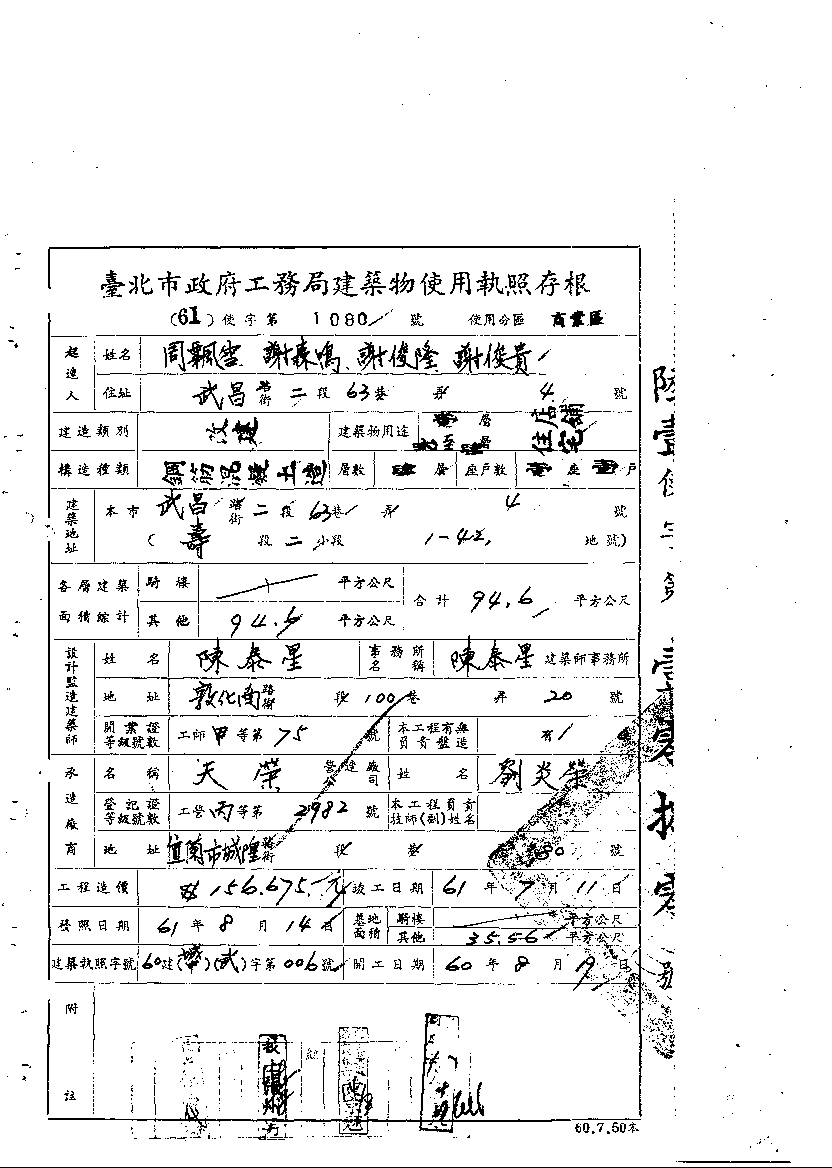 臺北市政府工務局建築物使用執照存根
(61)使字第 1080 號 使用分區 商業區
起造人 姓名 周飄雪 謝森鳴 謝俊隆 謝俊貴
住址 武昌 路街 二 段 63 巷 弄 4 號
建造類別 改建 建築物用途 層 店舖
層 住宅
構造種類 鋼筋混凝土造 層數 層 座戶數 座 戶
建築地址 本市 武昌 路街 二 段 63 巷 弄 4 號
( 壽 段 二 小段 1-42 地號)
各層建築面積綜計 騎樓 平方公尺 合計 94.6 平方公尺
其他 94.6 平方公尺
設計監造建築師 姓名 陳泰星 事務所名稱 陳泰星 建築師事務所
地址 敦化南 路街 段 100 巷 弄 20 號
開業證等級號數 工師 甲 等第 75 號 本工程有無負責監造 有
承造廠商 名稱 天榮 營造廠公司 姓名 劉炎榮
登記證等級號數 工營 丙 等第 2982 號 本工程負責技師(副)姓名
地址 宜蘭市城隍 路街 段 巷 80 號
工程造價 156.675.元 竣工日期 61 年 7 月 11 日
發照日期 61 年 8 月 14 日 基地面積 騎樓 平方公尺
其他 35.56 平方公尺
建築執照字號 60建( )(武)字第 006 號 開工日期 60 年 8 月 19 日
附註
60.7.50本